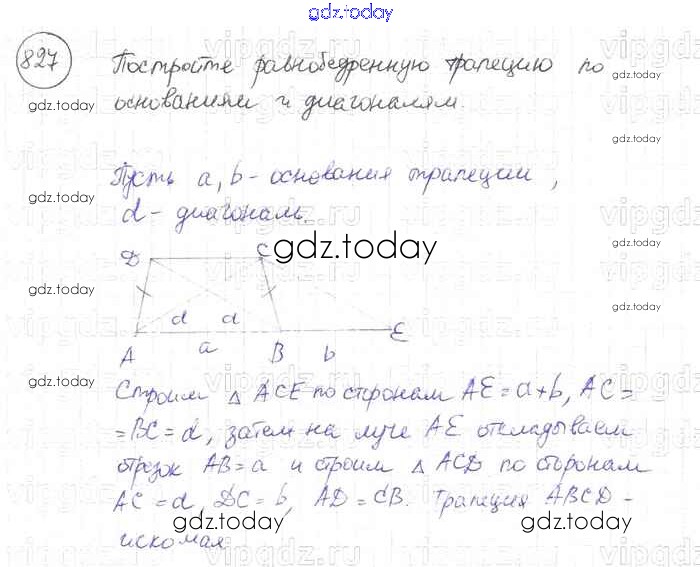 gdz.today
827 Постройте равнобедренную трапецию по
основаниям и диагоналям.
Пусть a, b - основания трапеции,
d - диагональ.
D C
d d
A a B b E
Строим △ ACE по сторонам AE = a+b, AC =
= BC = d, затем на луче AE откладываем
отрезок AB = a и строим △ ACD по сторонам
AC = d, DC = b, AD = CB. Трапеция ABCD -
искомая
gdz.today
gdz.today
gdz.today
gdz.today
gdz.today
gdz.today
gdz.today
gdz.today
gdz.today
gdz.today
gdz.today
gdz.today
gdz.today